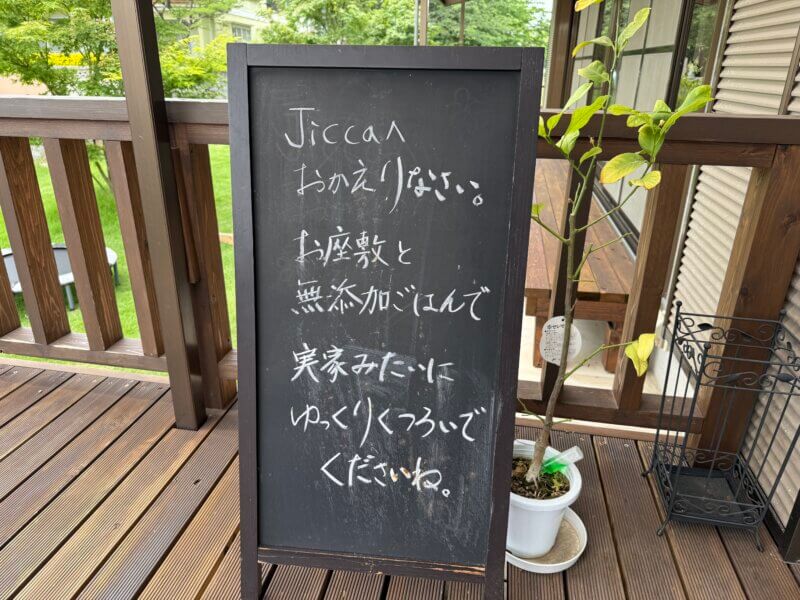 Jiccaへ
おかえりなさい。
お座敷と
無添加ごはんで
実家みたいに
ゆっくりくつろいで
くださいね。